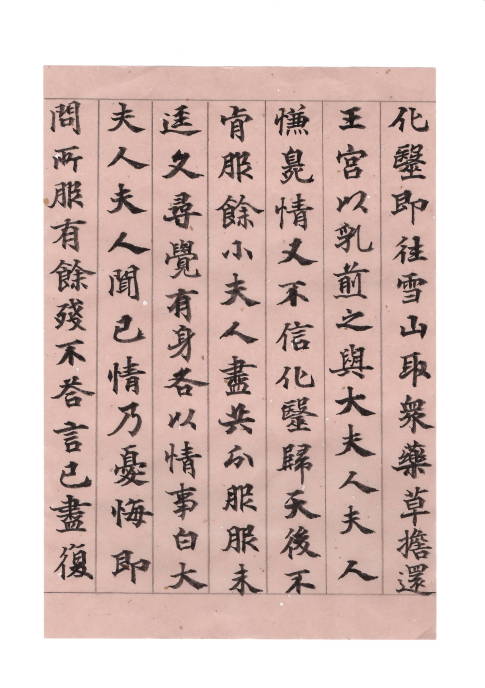 化毉即往雪山取衆藥草擔還
王宮以乳煎之與大夫人夫人
慊臰情又不信化毉歸天後不
肯服餘小夫人盡共分服服未
逕久尋覺有身各以情事白大
夫人夫人聞已情乃憂悔即
問所服有餘殘不荅言已盡復